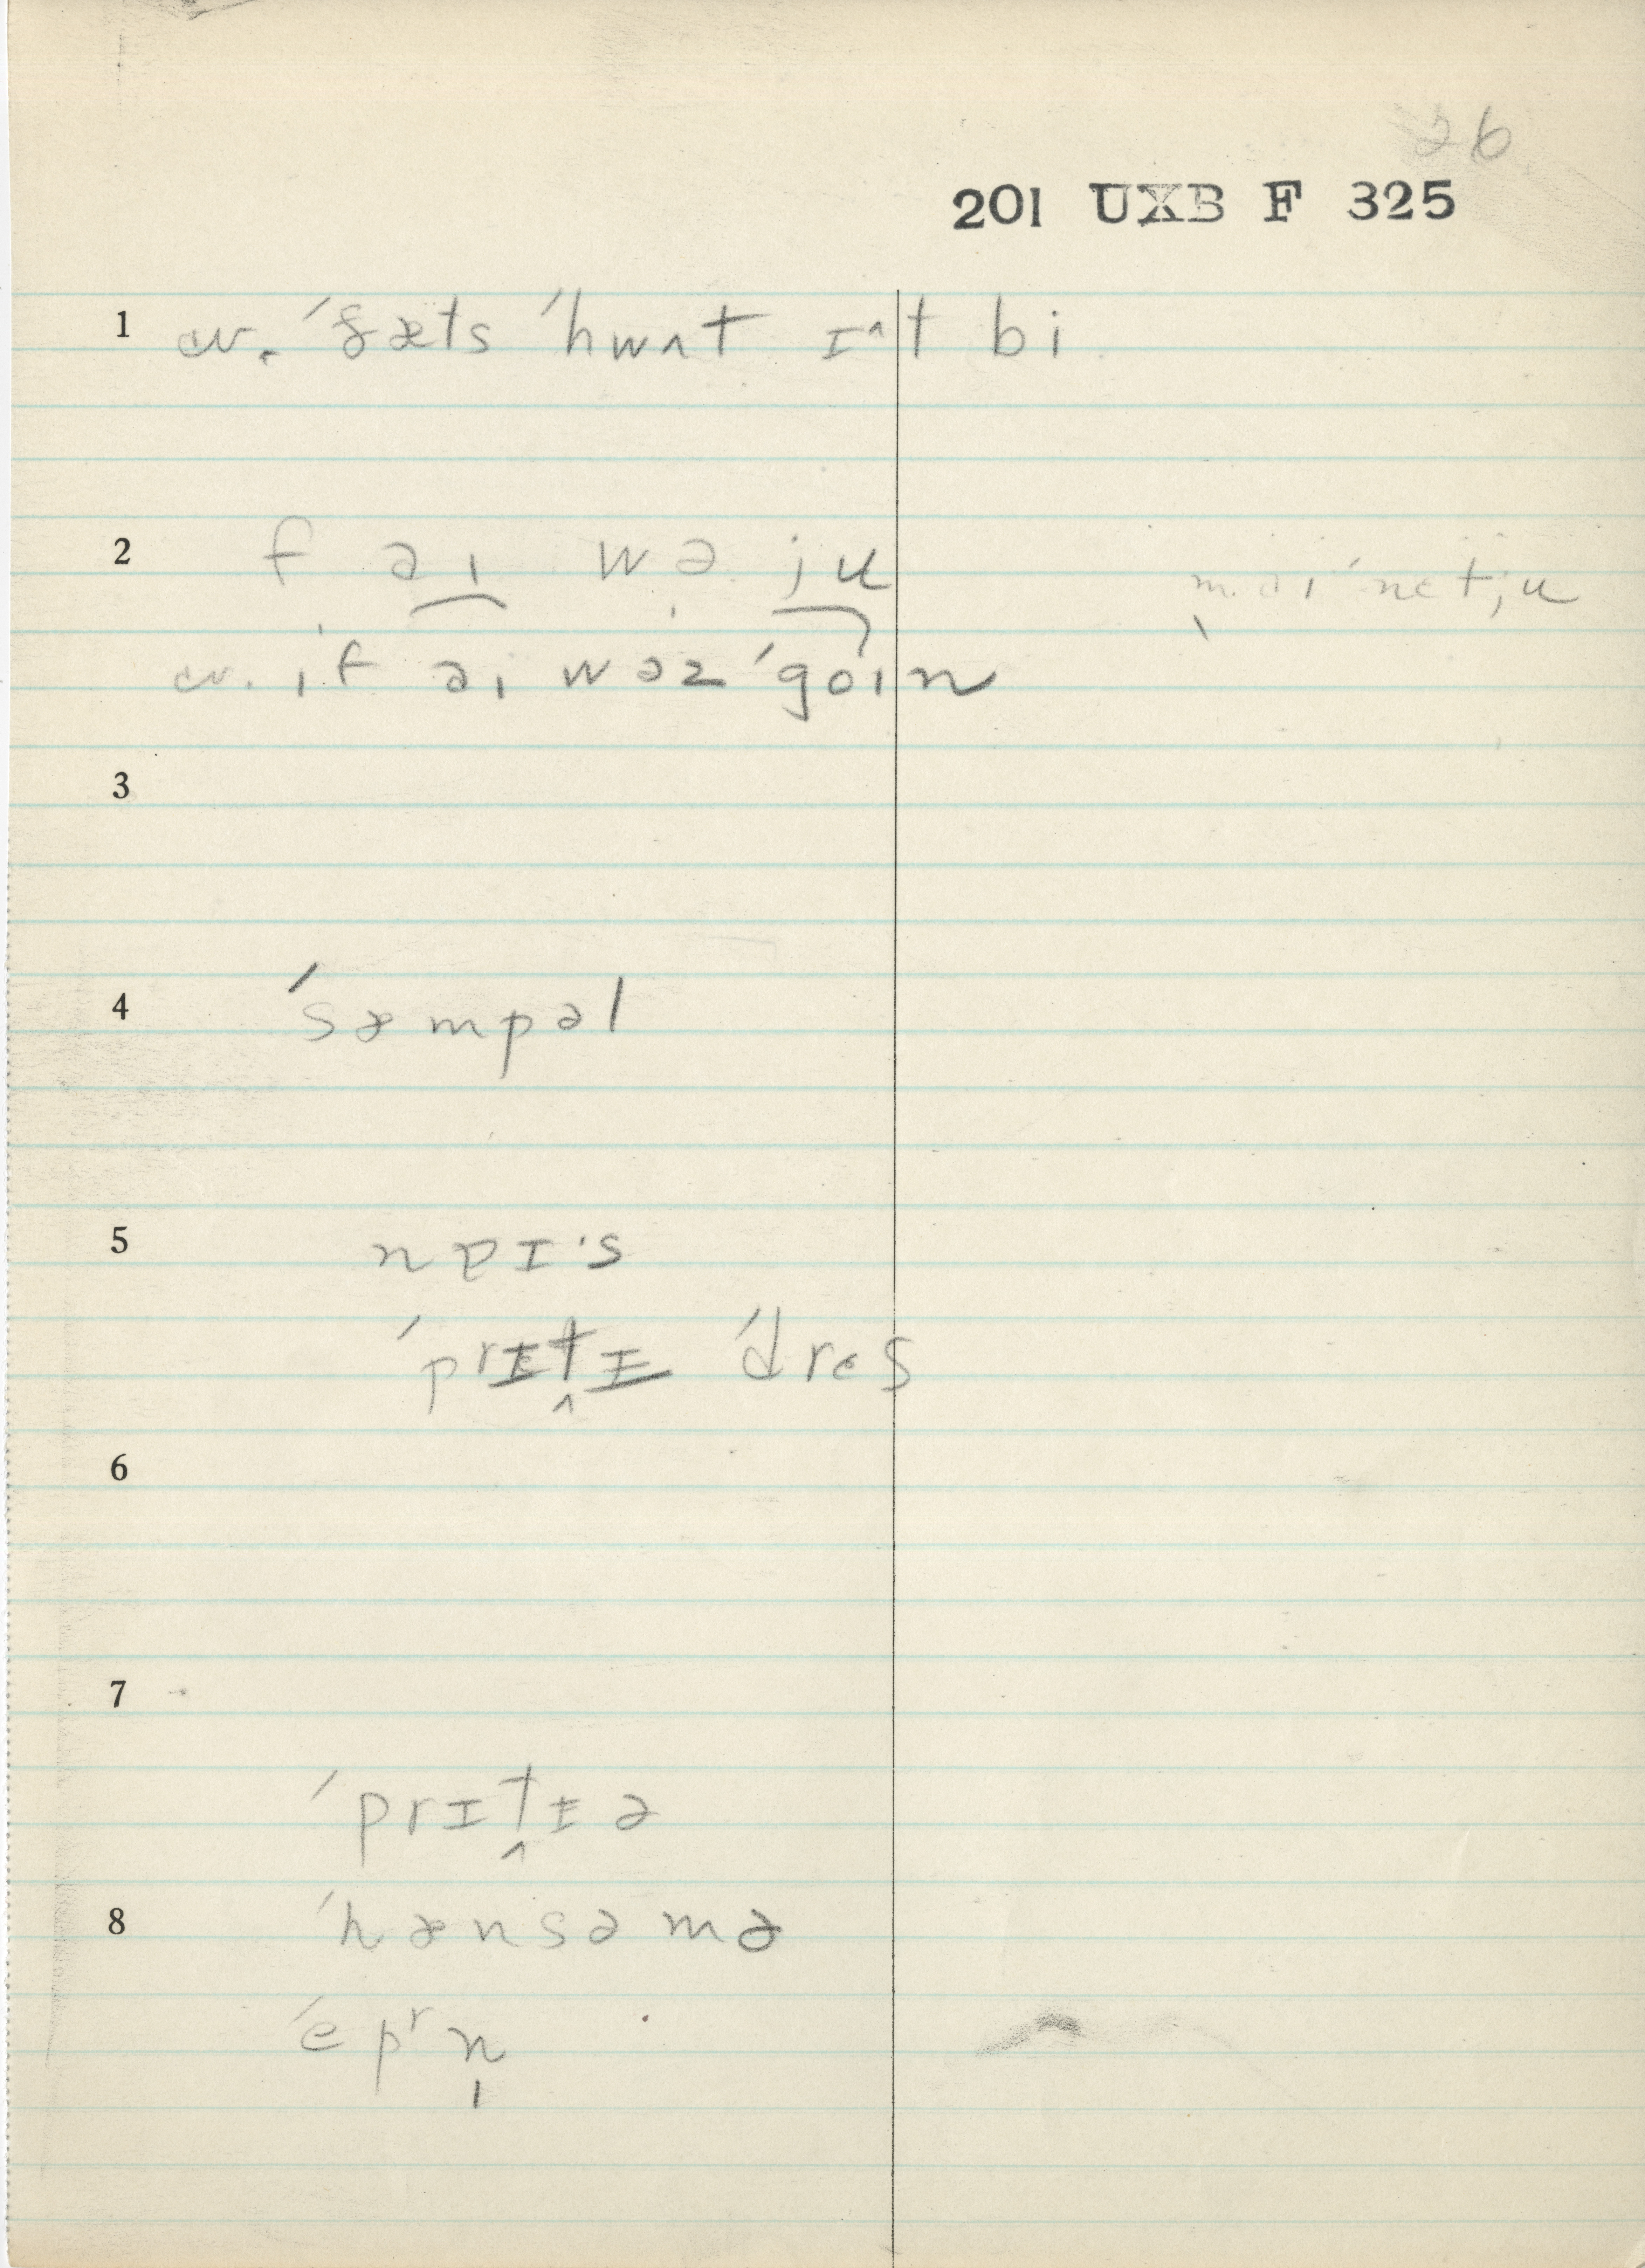 26
201 UXB F 325
1 cv. ˈðæts ˈhwʌt ɪ^t bi
2 f aɪ wə ju
mai ˈnɛtju
cv. ɪf aɪ wəz ˈgoɪn
3
4 ˈsæmpəl
5 npɪ's
ˈprɪtɪ ˈdrɛs
6
7
ˈprɪtɪə
8 ˈhænsəmə
ˈepʳn̩